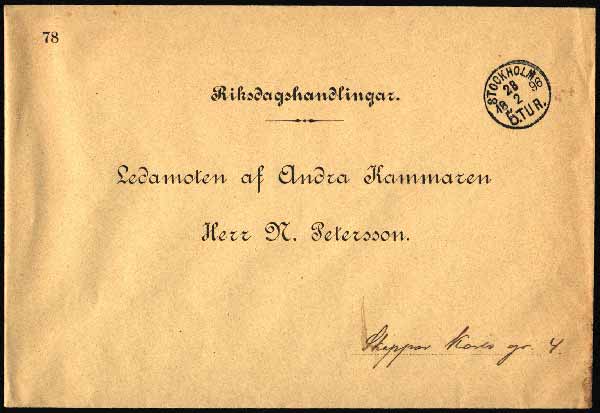 78
STOCKHOLM
28
18 2 98
5.TUR.
Riksdagshandlingar.
Ledamoten af Andra Kammaren
Herr N. Petersson.
Skeppar Karls gr. 4.